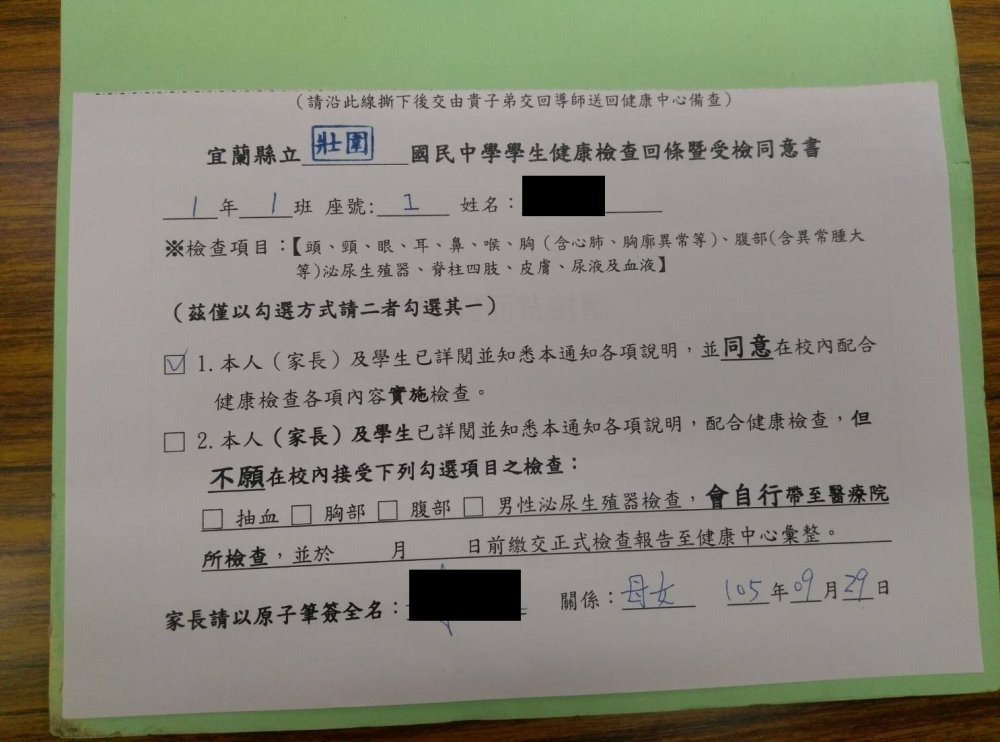 (請沿此線撕下後交由貴子弟交回導師送回健康中心備查)
宜蘭縣立 壯圍 國民中學學生健康檢查回條暨受檢同意書
1年1班 座號:1 姓名：
※檢查項目：【頭、頸、眼、耳、鼻、喉、胸(含心肺、胸廓異常等)、腹部(含異常腫大
等)泌尿生殖器、脊柱四肢、皮膚、尿液及血液】
(茲僅以勾選方式請二者勾選其一)
☑ 1.本人(家長)及學生已詳閱並知悉本通知各項說明，並同意在校內配合
健康檢查各項內容實施檢查。
□ 2.本人(家長)及學生已詳閱並知悉本通知各項說明，配合健康檢查，但
不願在校內接受下列勾選項目之檢查：
□ 抽血 □ 胸部 □ 腹部 □ 男性泌尿生殖器檢查，會自行帶至醫療院
所檢查，並於 月 日前繳交正式檢查報告至健康中心彙整。
家長請以原子筆簽全名： 關係：母女 105年09月29日